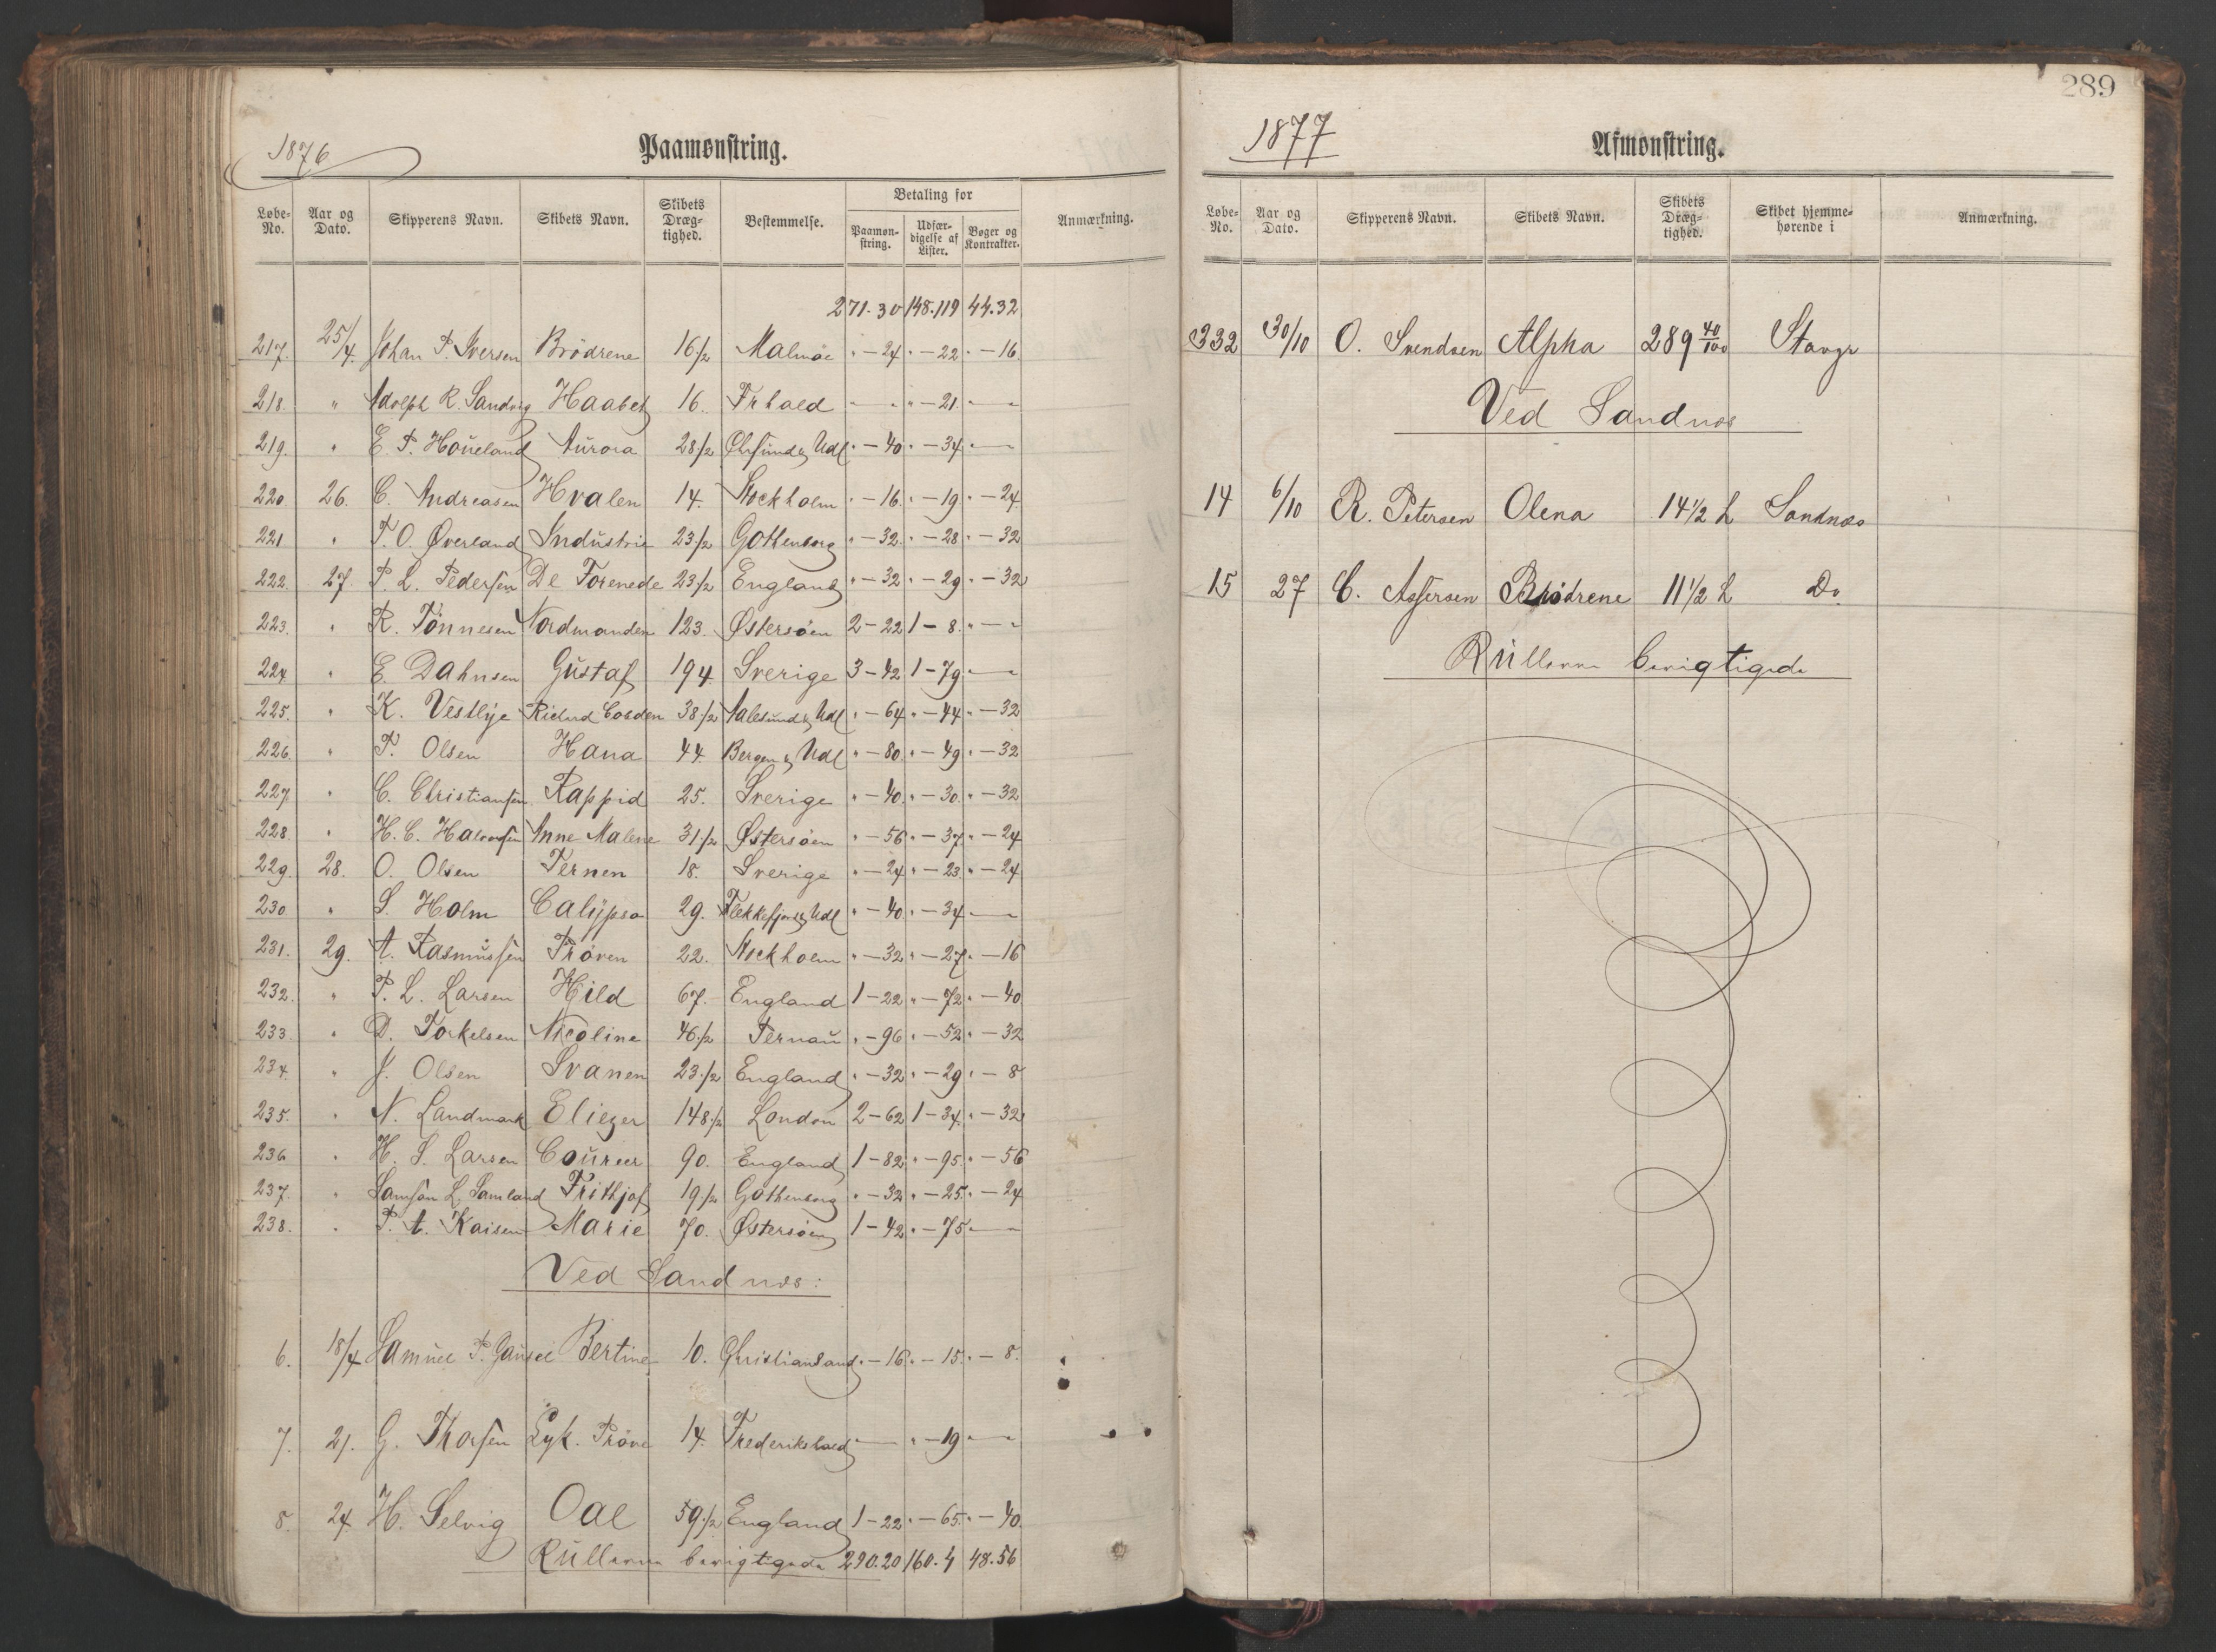 1876
Paamønstring.
Løbe-No. Aar og Dato. Skipperens Navn. Skibets Navn. Skibets Dræg-tighed. Bestemmelse. Betaling for Paamøn-string. Udfær-digelse af Lister. Bøger og Kontrakter. Anmærkning.
271.30 148.119 44.32
217. 25/4. Johan P. Iversen Brödrene 16 1/2 Malmöe " - 24 " - 22 " - 16
218. " Adolph R. Sandvig Haabet 16. Frhald - - " - 21. " -
219. " E. P. Houeland Aurora 28 1/2 & Udl " - 40 " - 34 " -
220 26. C. Andreasen Hvalen 14. Stockholm " - 16 " - 19 " - 24
221 " T. O. Øverland Industrie 23 1/2 Gothenborg " - 32. " - 28 " - 32
222. 27. P. L. Pedersen De Forenede 23 1/2 England " - 32 " - 29 " - 32
223. " R. Tönnesen Nordmanden 123. Østersöen 2 - 22 1 - 8. " - "
224. " E. Dahnsen Gustaf 194 Sverige 3 - 42 1 - 79 " -
225. " K. Vestbye Richard Cobden 38 1/2 Aalesund & Udl " - 64 " - 44 " - 32
226. " T. Olsen Hana 44. Bergen & Udl " - 80 " - 49 " - 32
227. " C. Christiansen Rappid 25. Sverige " - 40. " - 30. " - 32
228. " H. C. Halvorsen Anne Malene 31 1/2 Østersöen " - 56 " - 37 " - 24
229. 28. O. Olsen Ternen 18. Sverige " - 24 " - 23 " - 24
230 " S. Holm Calÿpso 29. Flekkefjord & Udl " - 40 " - 34 " -
231. 29. A. Rasmussen Pröven 22. Stockholm " - 32 " - 27 " - 16
232. " P. L. Larsen Hild 67. England 1 - 22 " - 72 " - 40
233. " D. Torkelsen Nicoline 46 1/2 Pernau " - 96 " - 52 " - 32
234. " J. Olsen Svanen 23 1/2 England " - 32 " - 29 " - 8
235. " N. Landmark Eliezer 148 1/2 London 2 - 62 1 - 34. " - 32
236 " H. S. Larsen Coureer 90. England 1 - 82 " - 95 " - 56
237. " Samson L. Samland Frithjof 19 1/2 Gothenborg " - 32 " - 25. " - 24
238. " P. A. Kaisen Marie 70. Østersöen 1 - 42 " - 75 " -
Ved Sandnæs:
6. 18/4 Samuel P. Gausel Bertine 10. Christiansand " - 16 " - 15. " - 8.
7. 21. G. Thorsen Lyk. Pröve 14. Frederikshald " - " - 19 " -
8. 24 H. Selvig Oal 59 1/2 England 1 - 22 " - 65. " - 40.
Rullerne berigtigede 290.20 160.4 48.56
289
1877
Afmønstring.
Løbe-No. Aar og Dato. Skipperens Navn. Skibets Navn. Skibets Dræg-tighed. Skibet hjemme-hørende i Anmærkning.
332 30/10 O. Svendsen Alpha 289 40/100 Stavgr
Ved Sandnæs
14 6/10 R. Petersen Olena 14 1/2 L Sandnæs
15 27 C. Assersen Brödrene 11 1/2 L Do
Rullerne berigtigede